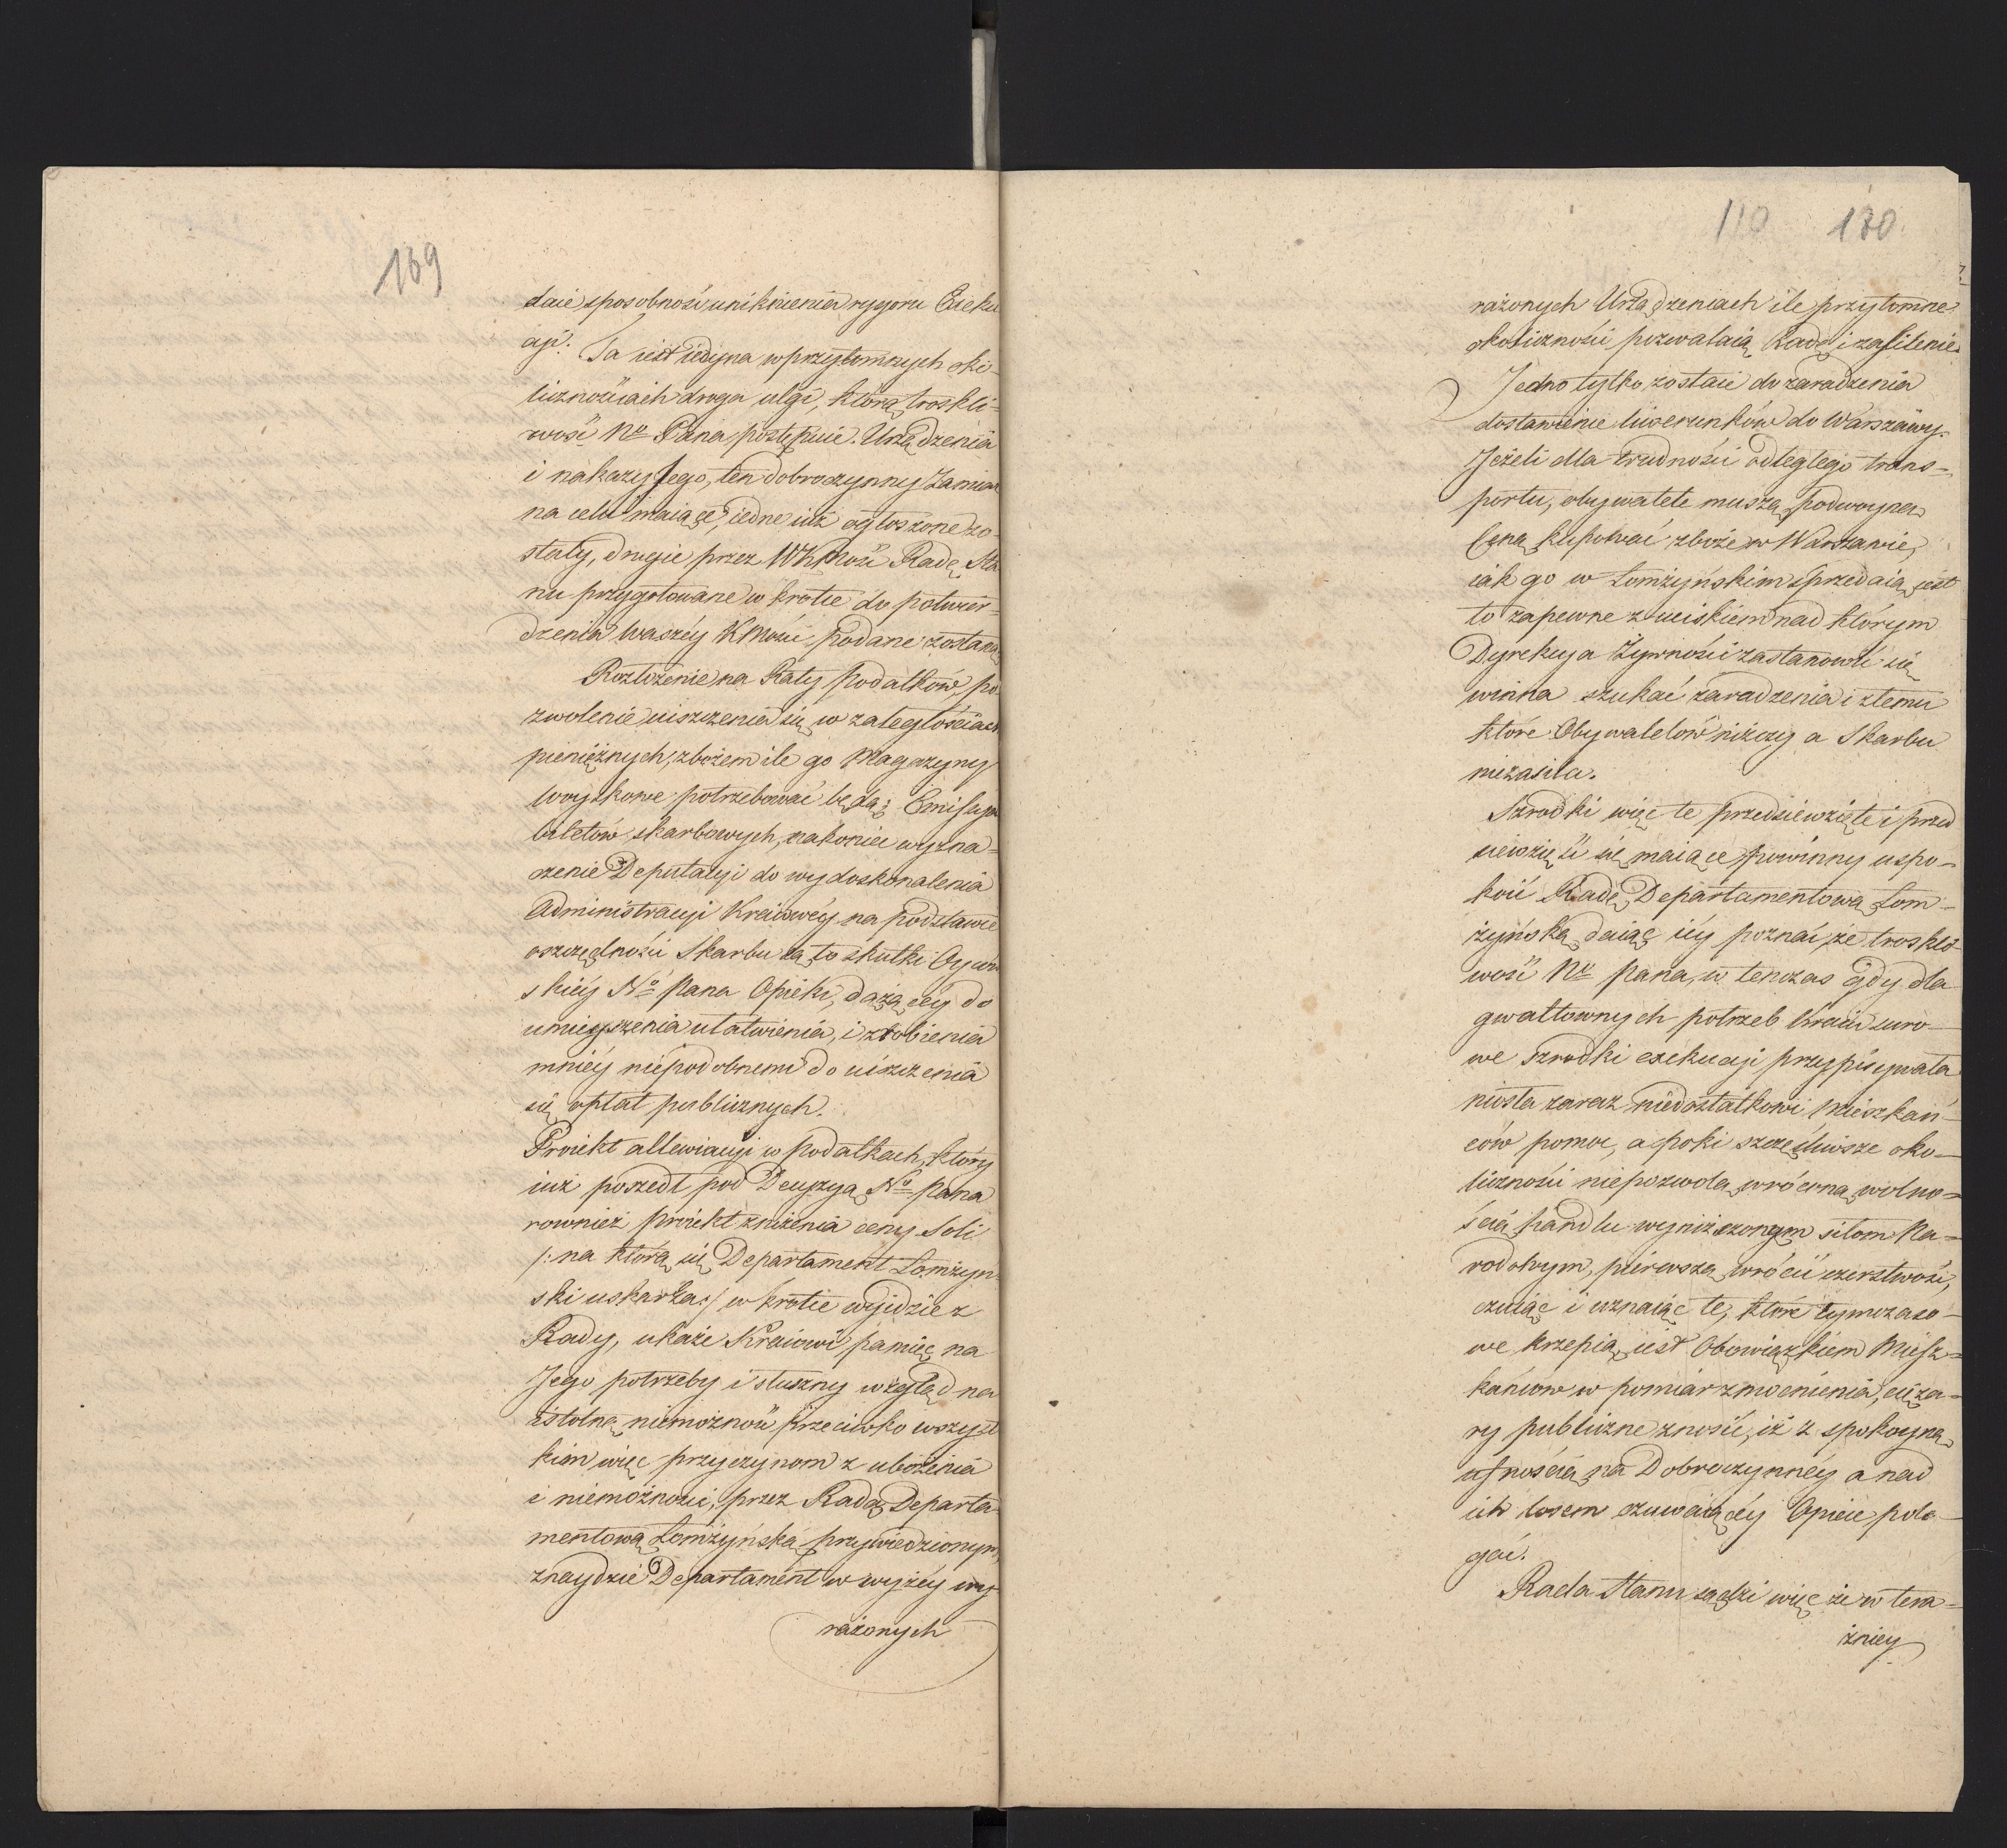 169
daie sposobność uniknienia rygoru Exeku
cyi.
Ta iest iedyna w przytomnych oko-
licznościach droga ulgi, którą troskli-
wość Nго Pana postępuie. Urządzenia
i nakazy Jego, ten dobroczynny Zamiar
na celu maiące, iedne iuż ogłoszone zo-
stały, drugie przez WKMość Radę Sta
nu przygotowane w krótce do potwier-
dzenia Waszéy KMości podane zostaną
Rozłożenie na Raty podatków, po
zwolenie uiszczenia się w zaległościach
pieniężnych, zbożem ile go Magazyny
Woyskowe potrzebować będą; Emissya
biletów skarbowych, nakoniec wyzna-
czenie Deputacyi do wydoskonalenia
Administracyi Kraiowéy na podstawie
oszczędności Skarbu są to skutki Oycow
skiéy Nго Pana Opieki, dążącéy do
umieyszenia ułatwienia, i zrobienia
mniéy niepodobnemi do uiszczenia
się opłat publicznych.
Proiekt allewiacyi w podatkach, który
iuż poszedł pod Decyzyą Nго Pana
rownież proiekt zniżenia ceny Soli
/: na którą się Departament Łomżyn
ski uskarża :/ w krótce wyjdzie z
Rady, ukaże Kraiowi pamięć na
Jego potrzeby i słuszny wzgląd na
istotną niemożność przeciwko wszyst
kim więc przyczynom z ubożenia
i niemożności, przez Radę Departa
mentową Łomżyńską przywiedzionym,
znaydzie Departament w wyżéy wy
rażonych
110 180
rażonych Urządzeniach ile przytomne
okoliczności pozwalaią Radę i zasilenie.
Jedno tylko zostaie do zaradzenia
dostawienie liwerunków do Warszawy.
Jeżeli dla trudności odległego trans-
portu, obywatele muszą podwoyną
Ceną kupować zboże w Warszawie,
iak go w Łomżyńskim sprzedaią, iest
to zapewne z uciskiem nad którym
Dyrekcya Żywności zastanowić się
winna szukać zaradzenia i złemu
które Obywatelów niszczy a Skarbu
niezasila.
Szrodki więc te przedsiewzięte i przed
siewziąść się maiące powinny uspo-
koić Radę Departamentową Łom-
żyńską daiąc iéy poznać, że troskli-
wość Nго Pana, w tenczas gdy dla
gwałtownych potrzeb kraiu suro-
we szrodki exekucyi przypisywała
niosła zaraz niedostatkowi Mieszkań-
ców pomoc, a poki szczęśliwsze oko-
liczności niepozwolą wróconą wolno-
ścią handlu wyniszczonym siłom Na-
rodowym, pierwszą wrócić czerstwość,
czuiąc i uznaiąc te, które tymczaso-
we krzepią, iest Obowiązkiem Miesz-
kańcow w pomiar zmocnienia, cięża-
ry publiczne znosić, iż z spokoyną
ufnością na Dobroczynnéy a nad
ich losem czuwaiącéy Opiece pole-
gać.
Rada Stanu sądzi więc że w tera-
źniey